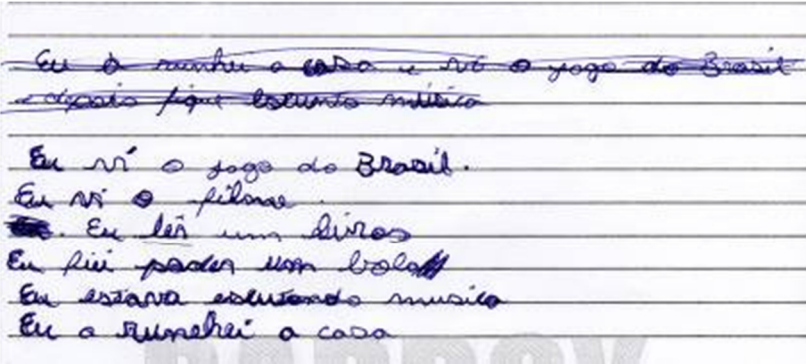 Eu a runhei a casa e vi o jogo do Brasil
e depois fique escunto música
Eu ví o jogo do Brasil.
Eu ví o filome.
. Eu ler um livros
Eu fiu um bolo
Eu estava escutando musica
Eu a runehei a casa